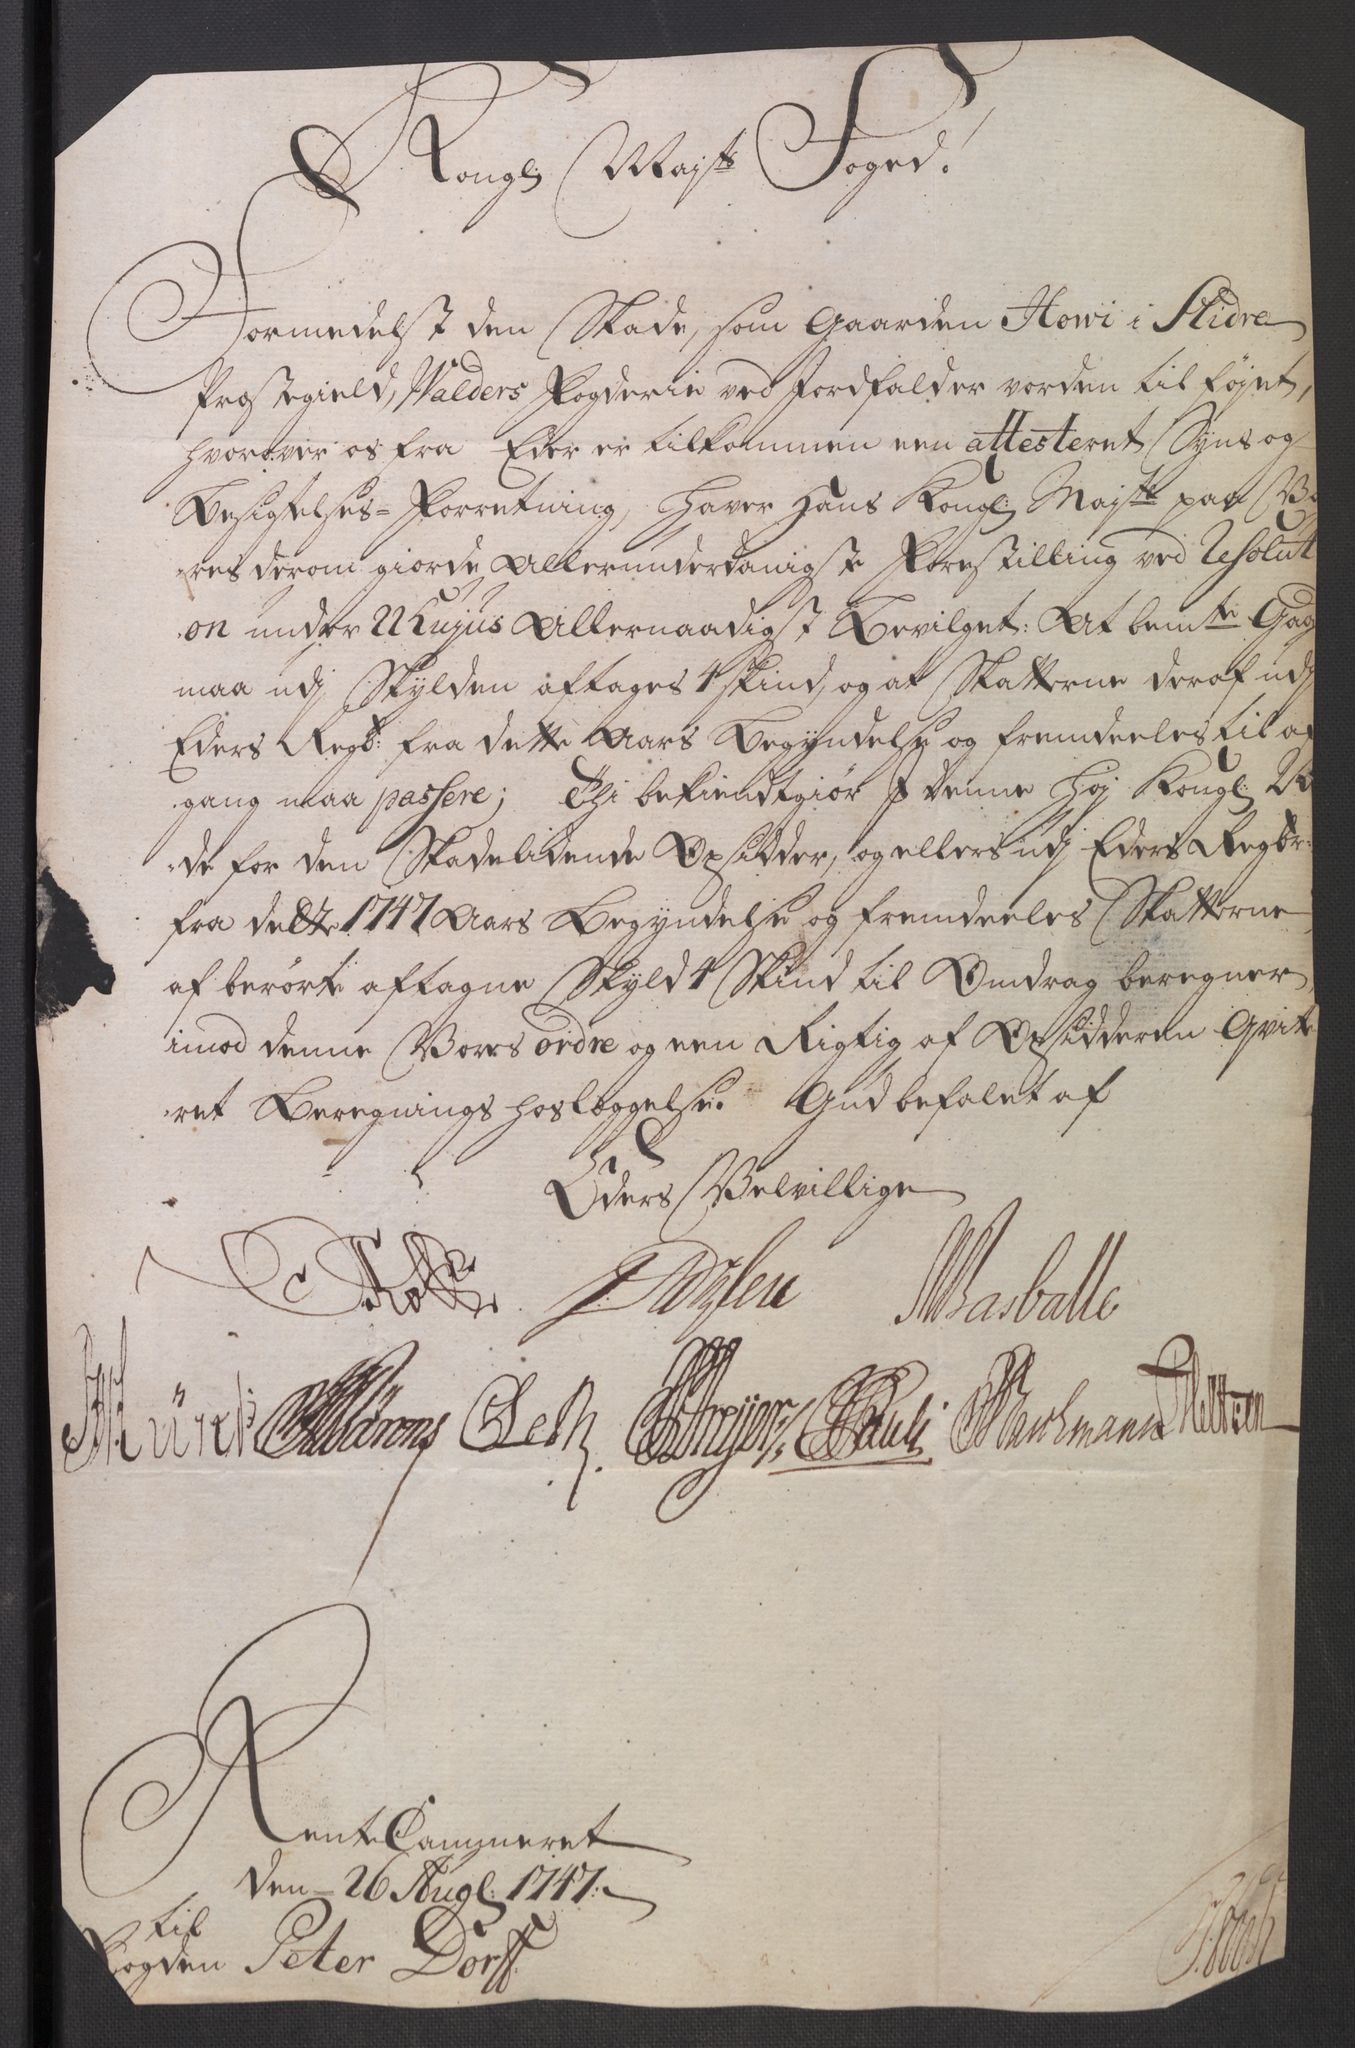 Kongl: Majsts Foged!
Formedelst den Skade, som Gaarden Howi i Slidre
Præstegield, Walders Fogderie ved Jordfalder vorden til føyet,
hvorover os fra Eder er tilkommen een attesteret Syns og
Besigtelses-Forretning, haver Hans Kongl: Majst paa Vo
res derom giorde Allerunderdanigste Forestilling ved Resoluti
on under 22 hujus Allernaadigst Bevilget: At bemte Gaa
maa udj Skylden aftages 4 skind, og at Skatterne deraf udj
Eders Regsk: fra dette Aars Begyndelse og fremdeeles til af
gang maa passere; Thi bekiendtgiør I denne høy Kongl: Naa
de for den Skadelidende Opsidder, og ellers udj Eders Regsk:
fra dette 1747 Aars Begyndelse og fremdeeles Skatterne
af berørte aftagne Skyld 4 Skind til Omdrag beregner
imod denne Vores ordre og een Rigtig af Opsidderen Qvitte
ret Beregnings hoslæggelse. Gud befalet af
Eders Velvillige
Masballe
Leth. Pauli
Rente Cammeret
den 26 Aug: 1747.
til
Fogden Peter Dorff